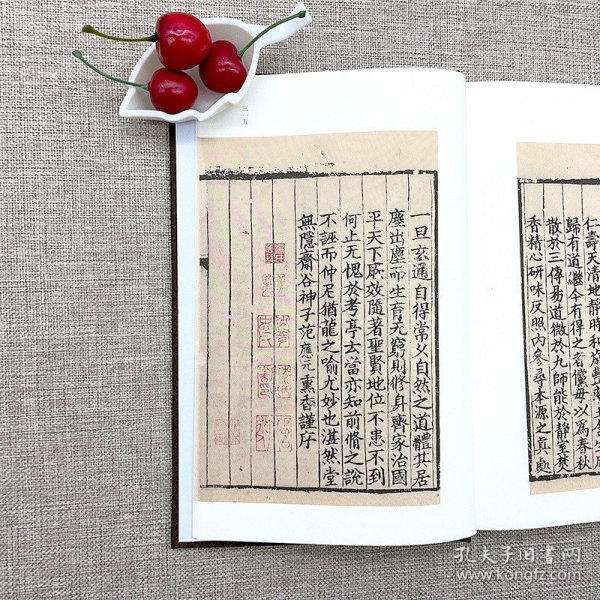 仁壽天清地靜時和歲豐
歸有道繼今有得之者僅毋以爲春秋
散於三傳易道微於九師能於靜室焚
香精心研味反照內參尋本源之真處
三一五
一旦玄通自得常久自然之道體其居
塵出塵而生育无窮則修身齊家治國
平天下厥效隨著聖賢地位不患不到
何止无愧於考亭去當亦知前脩之說
不誣而仲尼猶龍之喻尤妙也湛然堂
無隱齋谷神子范應元熏香謹序
孔夫子旧书网
www.kongfz.com